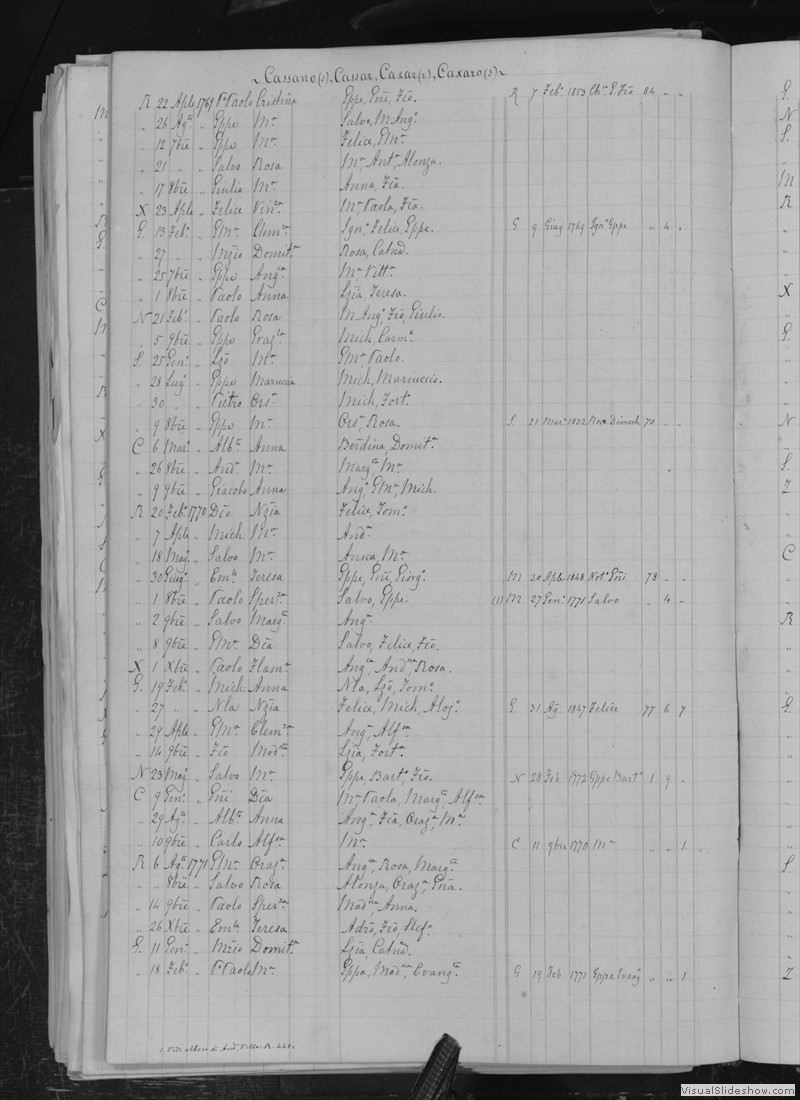 Cassano(s), Cassar, Caxar(s), Caxaro(s)
R 22 Aple 1769 P. Paolo Cristina Gppe, Gni, Fio. R 7 Feb. 1853 P. Fio 84 " "
" 26 Agto " Gppe Ma. Salvo, M Ang.
" 12 7bre " Gppe Ma. Felice, GMa.
" 21 " " Salvo Rosa Ma. Anta. Alonza.
" 17 8bre " Giulio Ma. Anna, Fia.
X 23 Aple " Felice Vinza Ma. Paola, Fia.
G. 13 Feb. " GMa. Clemza Ign. Felice, Gppe. G 9 Giug 1769 Ign. Gppe " 4 "
" 27 " " Mzio Domita Rosa, Catna.
" 25 7bre " Gppe Anga Ma. Vitta.
" 1 8bre " Paolo Anna Lzia, Teresa.
N 21 Feb. " Paolo Rosa M Ang. Fio, Giulio.
" 5 9bre " Gppe Grazla Mich, Carme.
S. 25 Gen. " Lzo Ma. GMa. Paolo.
" 28 Lug. " Gppe Maruccia Mich, Mariuccio.
" 30 " " Pietro Orsa Mich, Forto.
" 9 8bre " Gppe Ma. Orsa, Rosa. S. 21 Mar. 1832 Rosa Dimech 70 " "
C 6 Mar. " Albto Anna Berdina, Domita.
" 26 8bre " Anda Ma. Marga Ma.
" 9 9bre " Giacobo Anna Ang. GMa. Mich.
R 20 Feb. 1770 Dio Nzia Felice, Tom.
" 7 Aple " Mich. Ma. Anda.
" 18 Mag. " Salvo Ma. Anna, Ma.
" 30 Giug. " Emle Teresa Gppe, Gni, Giorg. M 20 Aple 1848 Not. Gni 78 " "
" 1 8bre " Paolo Sperza Salvo, Gppe. (1) M 27 Gen. 1771 Salvo " 4 "
" 2 9bre " Salvo Marga Ang.
" 8 9bre " GMa. Dia Salvo, Felice, Fio.
X 1 Xbre " Paolo Flama Anga, Andna, Rosa.
G. 19 Feb. " Mich. Anna Nla, Lzo, Tom.
" 27 " " Nlas Nzia Felice, Mich, Aloj. G. 31 Ag. 1847 Felice 77 6 7
" 29 Aple " GMa. Clemza Ang. Alfsa.
" 14 9bre " Fio Madna Lzia, Forta.
N 23 Mag. " Salvo Ma. Gppe, Barto. Fio. N 28 Feb 1772 Gppe Barto 1 9 "
C 9 Gen. " Gni Dia Ma. Paola, Marga, Alfsa
" 29 Agto " Albto Anna Anga, Fia, Graza, Ma.
" 10 9bre " Carlo Alfsa Ma. C 11 9bre 1770 Ma " " 1
R 6 Agto 1771 GMa. Graza Anga, Rosa, Marga.
" " 8bre " Salvo Rosa Alonza, Graza, Gna.
" 14 9bre " Paolo Sperza Madna, Anna.
" 26 Xbre " Emle Teresa Adro, Fio, Stef.
G. 11 Gen. " Mzio Domita Lzia, Catna.
" 18 Feb. " P. Paolo Ma. Gppa, Madna, Evanga. G 19 Feb 1771 Gppa Evang " " 1
VisualSlideshow.com